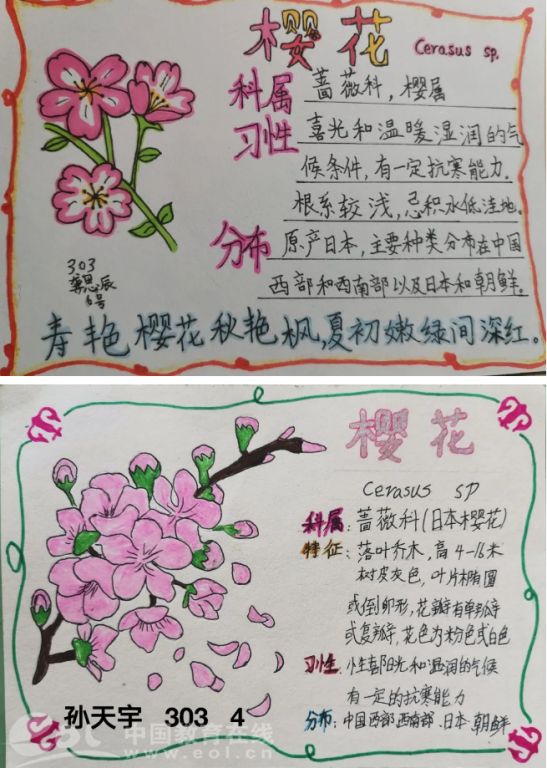 樱花
Cerasus sp.
科属 蔷薇科，樱属
习性 喜光和温暖湿润的气
候条件，有一定抗寒能力.
根系较浅，忌积水低洼地.
分布 原产日本，主要种类分布在中国
西部和西南部以及日本和朝鲜。
303
思辰
6号
春艳樱花秋艳枫，夏初嫩绿间深红。
樱花
Cerasus sp
科属：蔷薇科(日本樱花)
特征：落叶乔木，高4-16米
树皮灰色，叶片椭圆
或倒卵形，花瓣有单瓣
或复瓣，花色为粉色或白色
习性：性喜阳光和温润的气候
有一定的抗寒能力
分布：中国西部.西南部.日本.朝鲜
孙天宇 303 4
中国教育在线
www.eol.cn